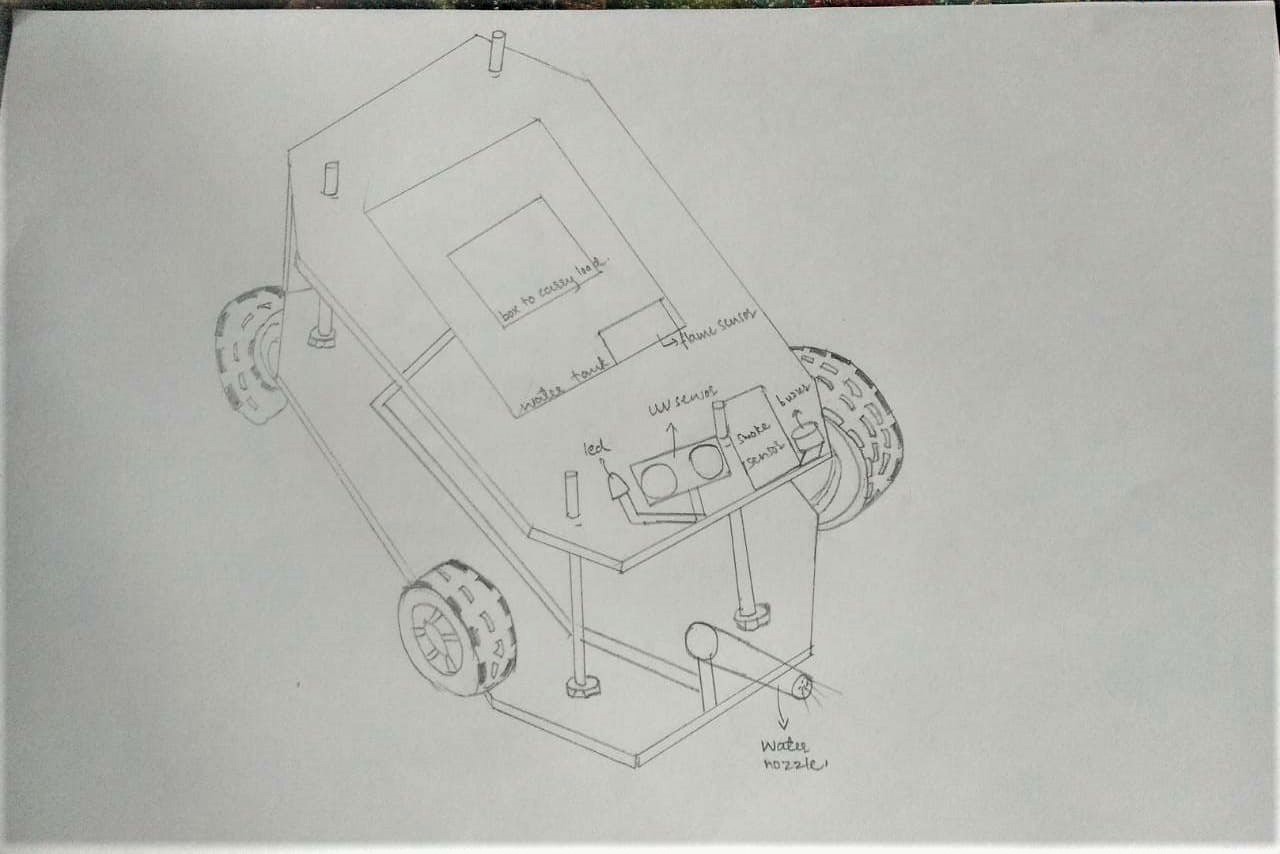 box to carry load.
flame sensor
water tank
UV sensor
buzzer
led
smoke
sensor
Water
nozzle.